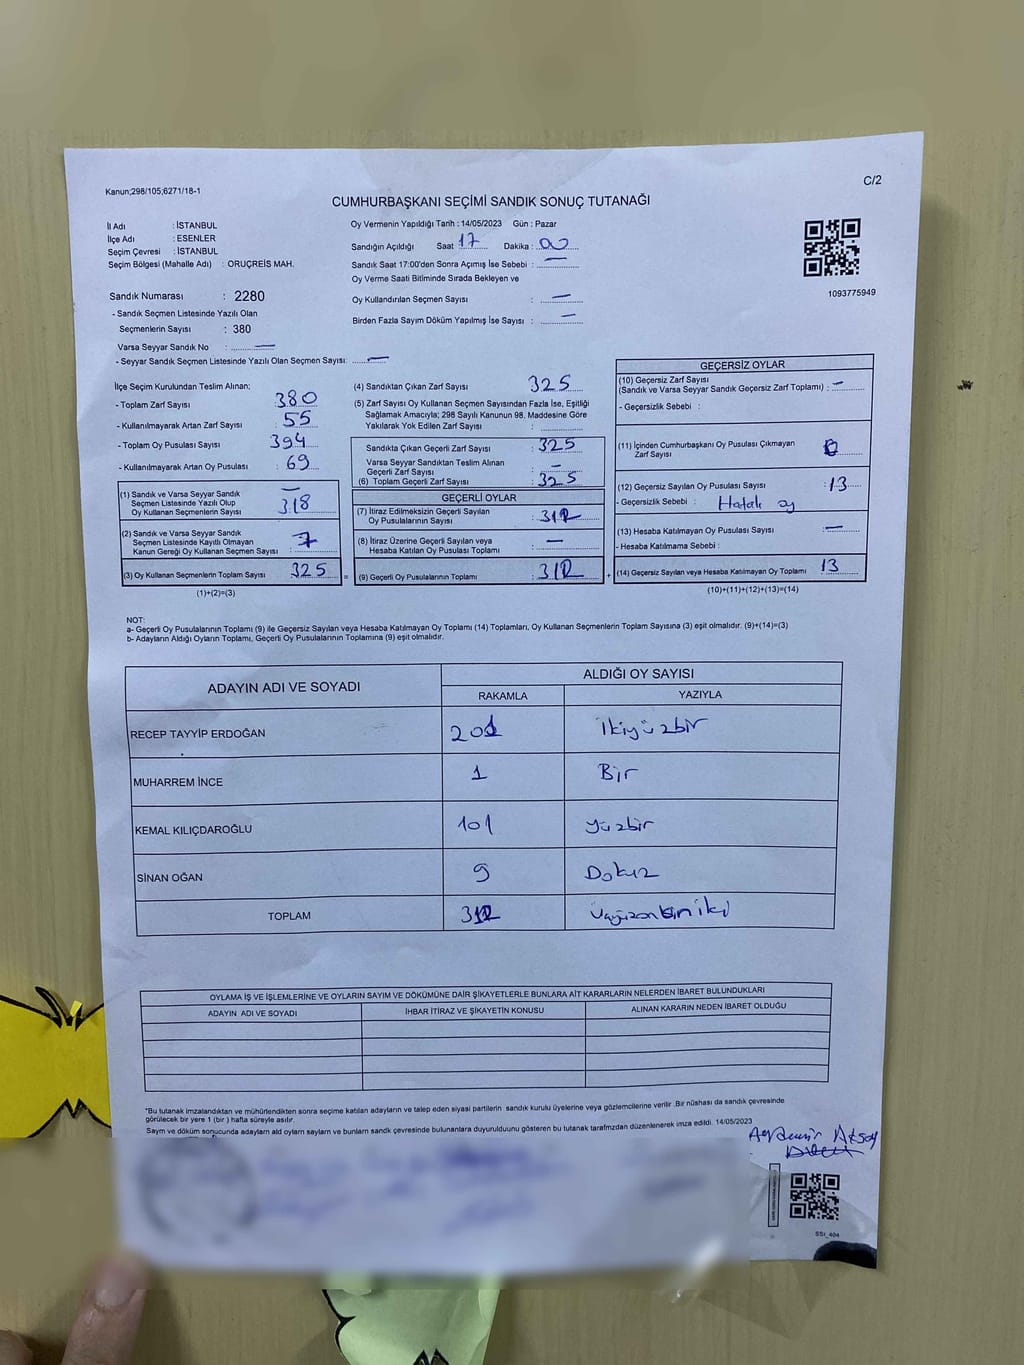 Kanun;298/105,6271/18-1
C/2
CUMHURBAŞKANI SEÇİMİ SANDIK SONUÇ TUTANAĞI
İl Adı : İSTANBUL
İlçe Adı : ESENLER
Seçim Çevresi : İSTANBUL
Seçim Bölgesi (Mahalle Adı) : ORUÇREİS MAH.
Oy Vermenin Yapıldığı Tarih : 14/05/2023 Gün : Pazar
Sandığın Açıldığı Saat 17 Dakika : 00
Sandık Saat 17:00'den Sonra Açımış İse Sebebi : —
Oy Verme Saati Bitiminde Sırada Bekleyen ve
Oy Kullandırılan Seçmen Sayısı : —
Birden Fazla Sayım Döküm Yapılmış İse Sayısı : —
1093775949
Sandık Numarası : 2280
- Sandık Seçmen Listesinde Yazılı Olan
Seçmenlerin Sayısı : 380
Varsa Seyyar Sandık No : —
- Seyyar Sandık Seçmen Listesinde Yazılı Olan Seçmen Sayısı: —
İlçe Seçim Kurulundan Teslim Alınan:
- Toplam Zarf Sayısı : 380
- Kullanılmayarak Artan Zarf Sayısı : 55
- Toplam Oy Pusulası Sayısı : 394
- Kullanılmayarak Artan Oy Pusulası : 69
(1) Sandık ve Varsa Seyyar Sandık
Seçmen Listesinde Yazılı Olup
Oy Kullanan Seçmenlerin Sayısı : 318
(2) Sandık ve Varsa Seyyar Sandık
Seçmen Listesinde Kayıtlı Olmayan
Kanun Gereği Oy Kullanan Seçmen Sayısı : 7
(3) Oy Kullanan Seçmenlerin Toplam Sayısı 325
(1)+(2)=(3)
(4) Sandıktan Çıkan Zarf Sayısı : 325
(5) Zarf Sayısı Oy Kullanan Seçmen Sayısından Fazla İse, Eşitliği
Sağlamak Amacıyla; 298 Sayılı Kanunun 98. Maddesine Göre
Yakılarak Yok Edilen Zarf Sayısı :
Sandıkta Çıkan Geçerli Zarf Sayısı : 325
Varsa Seyyar Sandıktan Teslim Alınan
Geçerli Zarf Sayısı : —
(6) Toplam Geçerli Zarf Sayısı : 325
GEÇERLİ OYLAR
(7) İtiraz Edilmeksizin Geçerli Sayılan
Oy Pusulalarının Sayısı : 312
(8) İtiraz Üzerine Geçerli Sayılan veya
Hesaba Katılan Oy Pusulası Toplamı : —
= (9) Geçerli Oy Pusulalarının Toplamı : 312 +
GEÇERSİZ OYLAR
(10) Geçersiz Zarf Sayısı
(Sandık ve Varsa Seyyar Sandık Geçersiz Zarf Toplamı) : —
- Geçersizlik Sebebi :
(11) İçinden Cumhurbaşkanı Oy Pusulası Çıkmayan
Zarf Sayısı : 0
(12) Geçersiz Sayılan Oy Pusulası Sayısı : 13
- Geçersizlik Sebebi : Hatalı oy
(13) Hesaba Katılmayan Oy Pusulası Sayısı : —
- Hesaba Katılmama Sebebi :
(14) Geçersiz Sayılan veya Hesaba Katılmayan Oy Toplamı 13
(10)+(11)+(12)+(13)=(14)
NOT:
a- Geçerli Oy Pusulalarının Toplamı (9) ile Geçersiz Sayılan veya Hesaba Katılmayan Oy Toplamı (14) Toplamları, Oy Kullanan Seçmenlerin Toplam Sayısına (3) eşit olmalıdır. (9)+(14)=(3)
b- Adayların Aldığı Oyların Toplamı, Geçerli Oy Pusulalarının Toplamına (9) eşit olmalıdır.
ADAYIN ADI VE SOYADI
ALDIĞI OY SAYISI
RAKAMLA YAZIYLA
RECEP TAYYİP ERDOĞAN 201 İkiyüzbir
MUHARREM İNCE 1 Bir
KEMAL KILIÇDAROĞLU 101 yüzbir
SİNAN OĞAN 9 Dokuz
TOPLAM 312 üçyüzoniki
OYLAMA İŞ VE İŞLEMLERİNE VE OYLARIN SAYIM VE DÖKÜMÜNE DAİR ŞİKAYETLERLE BUNLARA AİT KARARLARIN NELERDEN İBARET BULUNDUKLARI
ADAYIN ADI VE SOYADI İHBAR İTİRAZ VE ŞİKAYETİN KONUSU ALINAN KARARIN NEDEN İBARET OLDUĞU
"Bu tutanak imzalandıktan ve mühürlendikten sonra seçime katılan adayların ve talep eden siyasi partilerin sandık kurulu üyelerine veya gözlemcilerine verilir .Bir nüshası da sandık çevresinde
görülecek bir yere 1 (bir ) hafta süreyle asılır.
Sayım ve döküm sonucunda adayların ald oyların sayların ve bunların sandk çevresinde bulunanlara duyurulduunu gösteren bu tutanak tarafmzdan düzenlenerek imza edildi. 14/05/2023
SSI_404